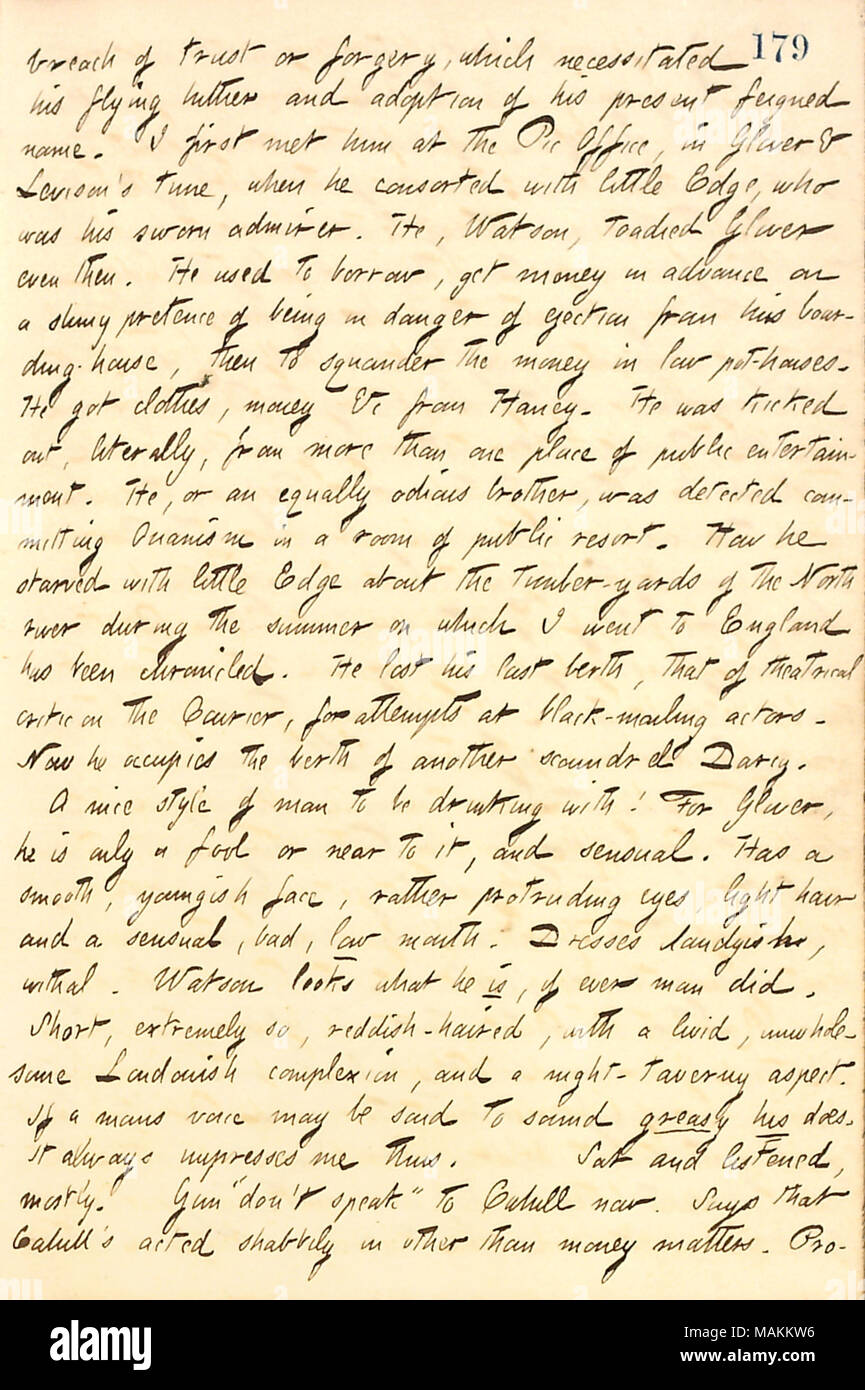 179
breach of trust or forgery, which necessitated
his flying hither and adoption of his present feigned
name. I first met him at the Pic Office, in Glover &
Levison's time, when he consorted with little Edge, who
was his sworn admirer. He, Watson, toadied Glover
even then. He used to borrow, get money in advance on
a sham pretence of being in danger of ejection from his boar-
ding-house, then to squander the money in low pot-houses.
He got clothes, money &c from Haney. He was kicked
out, literally, from more than one place of public entertain-
ment. He, or an equally odious brother, was detected com-
mitting Onanism in a room of public resort. How he
starved with little Edge about the timber-yards of the North
river during the summer on which I went to England
has been chronicled. He lost his last berth, that of theatrical
critic on the Courier, for attempts at black-mailing actors.
Now he occupies the berth of another scoundrel Darcy.
A nice style of man to be drinking with! For Glover,
he is only a fool or near to it, and sensual. Has a
smooth, youngish face, rather protruding eyes, light hair
and a sensual, bad, low mouth. Dresses dandyish,
withal. Watson looks what he is, if ever man did.
Short, extremely so, reddish-haired, with a livid, unwhole-
some Londonish complexion, and a night-taverny aspect.
If a mans voice may be said to sound greasy his does.
It always impresses me thus. Sat and listened,
mostly. Gun "don't speak" to Cahill now. Says that
Cahill's acted shabbily in other than money matters. Pro-
alamy
Image ID: MAKKW6
www.alamy.com